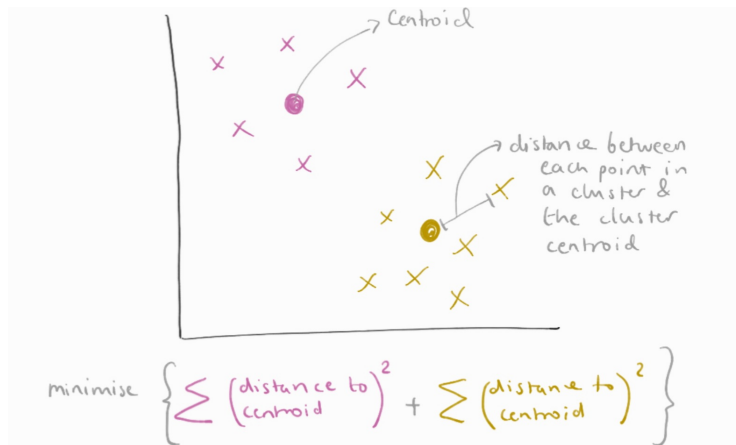 Centroid
distance between
each point in
a cluster &
the cluster
centroid
minimise { Σ (distance to centroid)² + Σ (distance to centroid)² }